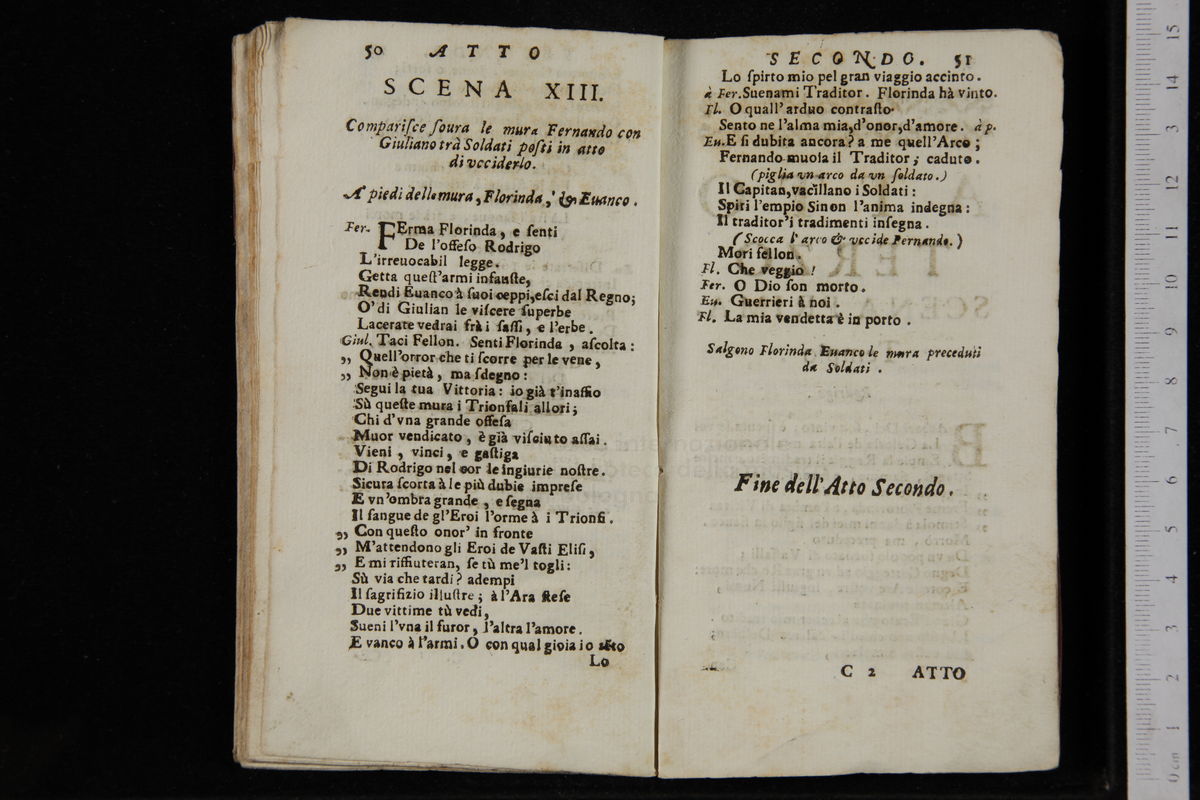 50 ATTO
SCENA XIII.
Compariſce ſoura le mura Fernando con
Giuliano trà Soldati poſti in atto
di vcciderlo.
A' piedi delle mura, Florinda, & Euanco.
Fer. FErma Florinda, e ſenti
De l'offeſo Rodrigo
L'irreuocabil legge.
Getta queſt'armi infauſte,
Rendi Euanco à ſuoi ceppi, eſci dal Regno;
O' di Giulian le viſcere ſuperbe
Lacerate vedrai frà i ſaſſi, e l'erbe.
Giul. Taci Fellon. Senti Florinda, aſcolta:
„ Quell'orror che ti ſcorre per le vene,
„ Non è pietà, ma ſdegno:
Segui la tua Vittoria: io già t'inaffio
Sù queſte mura i Trionfali allori;
Chi d'vna grande offeſa
Muor vendicato, è già viſciuto aſſai.
Vieni, vinci, e gaſtiga
Di Rodrigo nel cor le ingiurie noſtre.
Sicura ſcorta à le più dubie impreſe
E vn'ombra grande, e ſegna
Il ſangue de gl'Eroi l'orme à i Trionfi.
„ Con queſto onor' in fronte
„ M'attendono gli Eroi de Vaſti Eliſi,
„ E mi riffiuteran, ſe tù me'l togli:
Sù via che tardi? adempi
Il ſagrifizio illuſtre; à l'Ara ſteſe
Due vittime tù vedi,
Sueni l'vna il furor, l'altra l'amore.
E vanco à l'armi. O con qual gioia io
Lo
SECONDO. 51
Lo ſpirto mio pel gran viaggio accinto.
à Fer. Suenami Traditor. Florinda hà vinto.
Fl. O quall'arduo contraſto.
Sento ne l'alma mia, d'onor, d'amore. à p.
Eu. E ſi dubita ancora? a me quell'Arco;
Fernando muoia il Traditor; caduto.
(piglia vn arco da vn ſoldato.)
Il Capitan, vacillano i Soldati:
Spiri l'empio Sinon l'anima indegna:
Il traditor'i tradimenti inſegna.
(Scocca l'arco & vccide Fernando.)
Mori fellon.
Fl. Che veggio!
Fer. O Dio ſon morto.
Eu. Guerrieri à noi.
Fl. La mia vendetta è in porto.
Salgono Florinda Euanco le mura preceduti
da Soldati.
Fine dell'Atto Secondo.
C 2 ATTO